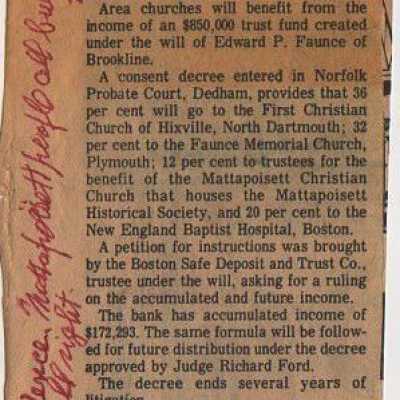 Area churches will benefit from the
income of an $850,000 trust fund created
under the will of Edward P. Faunce of
Brookline.
A consent decree entered in Norfolk
Probate Court, Dedham, provides that 36
per cent will go to the First Christian
Church of Hixville, North Dartmouth; 32
per cent to the Faunce Memorial Church,
Plymouth; 12 per cent to trustees for the
benefit of the Mattapoisett Christian
Church that houses the Mattapoisett
Historical Society, and 20 per cent to the
New England Baptist Hospital, Boston.
A petition for instructions was brought
by the Boston Safe Deposit and Trust Co.,
trustee under the will, asking for a ruling
on the accumulated and future income.
The bank has accumulated income of
$172,293. The same formula will be follow-
ed for future distribution under the decree
approved by Judge Richard Ford.
The decree ends several years of
litigation.
Mattapoisett people all
right.